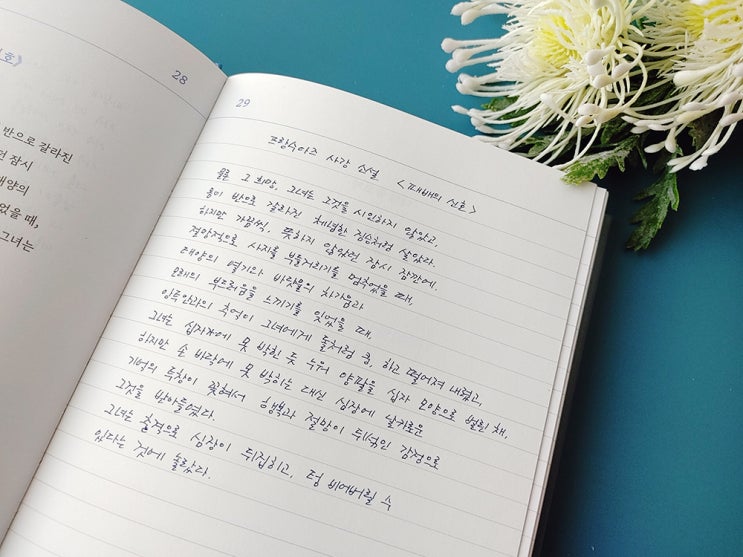 호》
28
반으로 갈라진
던 잠시
태양의
었을 때,
그녀는
29
프랑수아즈 사강 소설 <패배의 신호>
물론 그 희망, 그녀는 그것을 시인하지 않았고,
몸이 반으로 갈라진 체념한 짐승처럼 살았다.
하지만 가끔씩, 뜻하지 않았던 잠시 잠깐에,
절망적으로 사지를 버둥거리기를 멈추었을 때,
태양의 열기와 바닷물의 차가움과
모래의 부드러움을 느끼기를 잊었을 때,
앙투안과의 추억이 그녀에게 돌처럼 쿵, 하고 떨어져 내렸고,
그녀는 십자가에 못 박힌 듯 누워 양팔을 십자 모양으로 벌린 채,
하지만 손 바닥에 못 박히는 대신 심장에 날카로운
기억의 투창이 꽂혀서 행복과 절망이 뒤섞인 감정으로
그것을 받아들였다.
그녀는 충격으로 심장이 뒤집히고, 텅 비어버릴 수
있다는 것에 놀랐다.